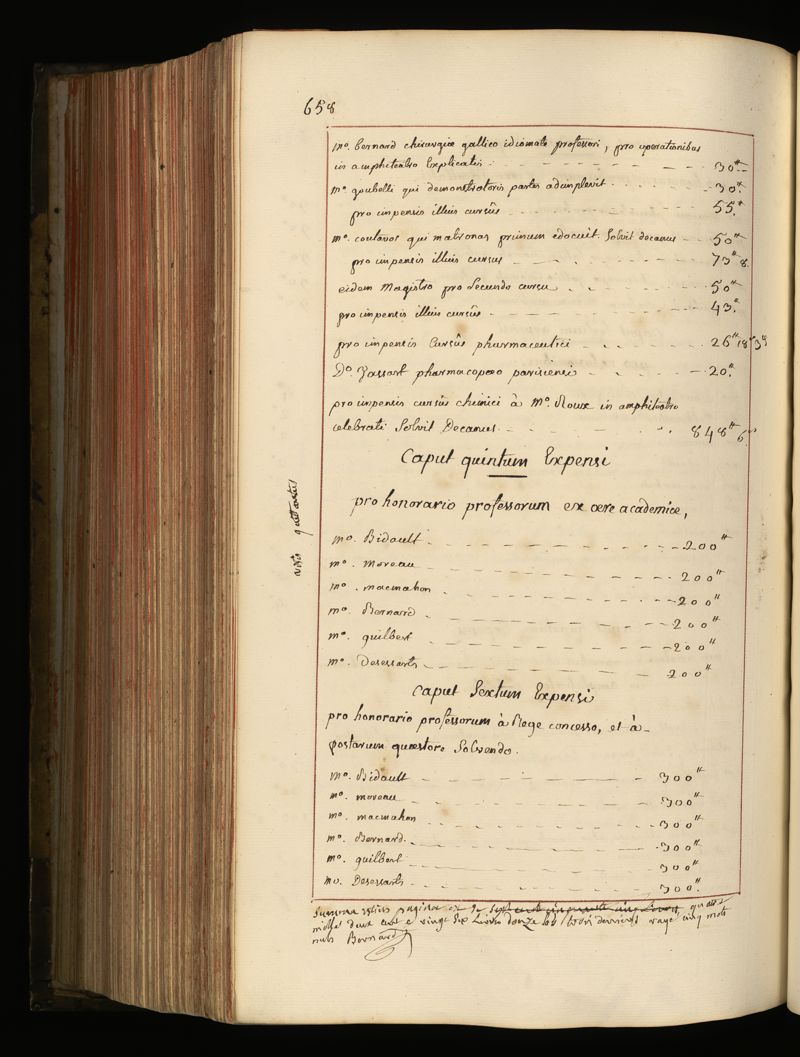 658
mo. bernard chirurgiæ gallico idiomate professori, pro operationibus
in amphiteatro Explicatis. 30tt
mo. goubelli qui demonstratoris partes adimplevit 30tt
pro inpensis illius cursûs 55tt
mo. coutavos qui matronas primum edocuit. Solvit decanus 50tt
pro inpensis illius cursus 73tt 8
eidem Magistro pro Secundo cursu 50tt
pro inpensis illius cursûs 43tt
pro inpensis Cursûs pharmaceutici 26tt 18s 3d
Do. Zassart pharmacopæo parisiensi 20tt
pro inpensis cursûs chimici à Mo. Roux in amphiteatro
celebrati Solvit Decanus 848tt 6s
Caput quintum Expensi
pro honorario professorum ex ære academiæ,
visis quittantiis
mo. Bidault 200tt
mo. Moreau 200tt
mo. macmahon 200tt
mo. Bernard 200tt
mo. guilbert 200tt
mo. Desessarts 200tt
Caput Sextum Expensi
pro honorario professorum à Rege concesso, et à
postarum quæstore Solvendo.
mo. Bidault 300tt
mo. moreau 300tt
mo. macmahon 300tt
mo. Bernard 300tt
mo. guilbert 300tt
mo. Desessarts 300tt
Summa istius paginæ est de Sept cent cinquante cinq Livres, quatre
mille deux cent e vingt Six Livres douze sols trois deniers rayé cinq mots
nuls Bernard